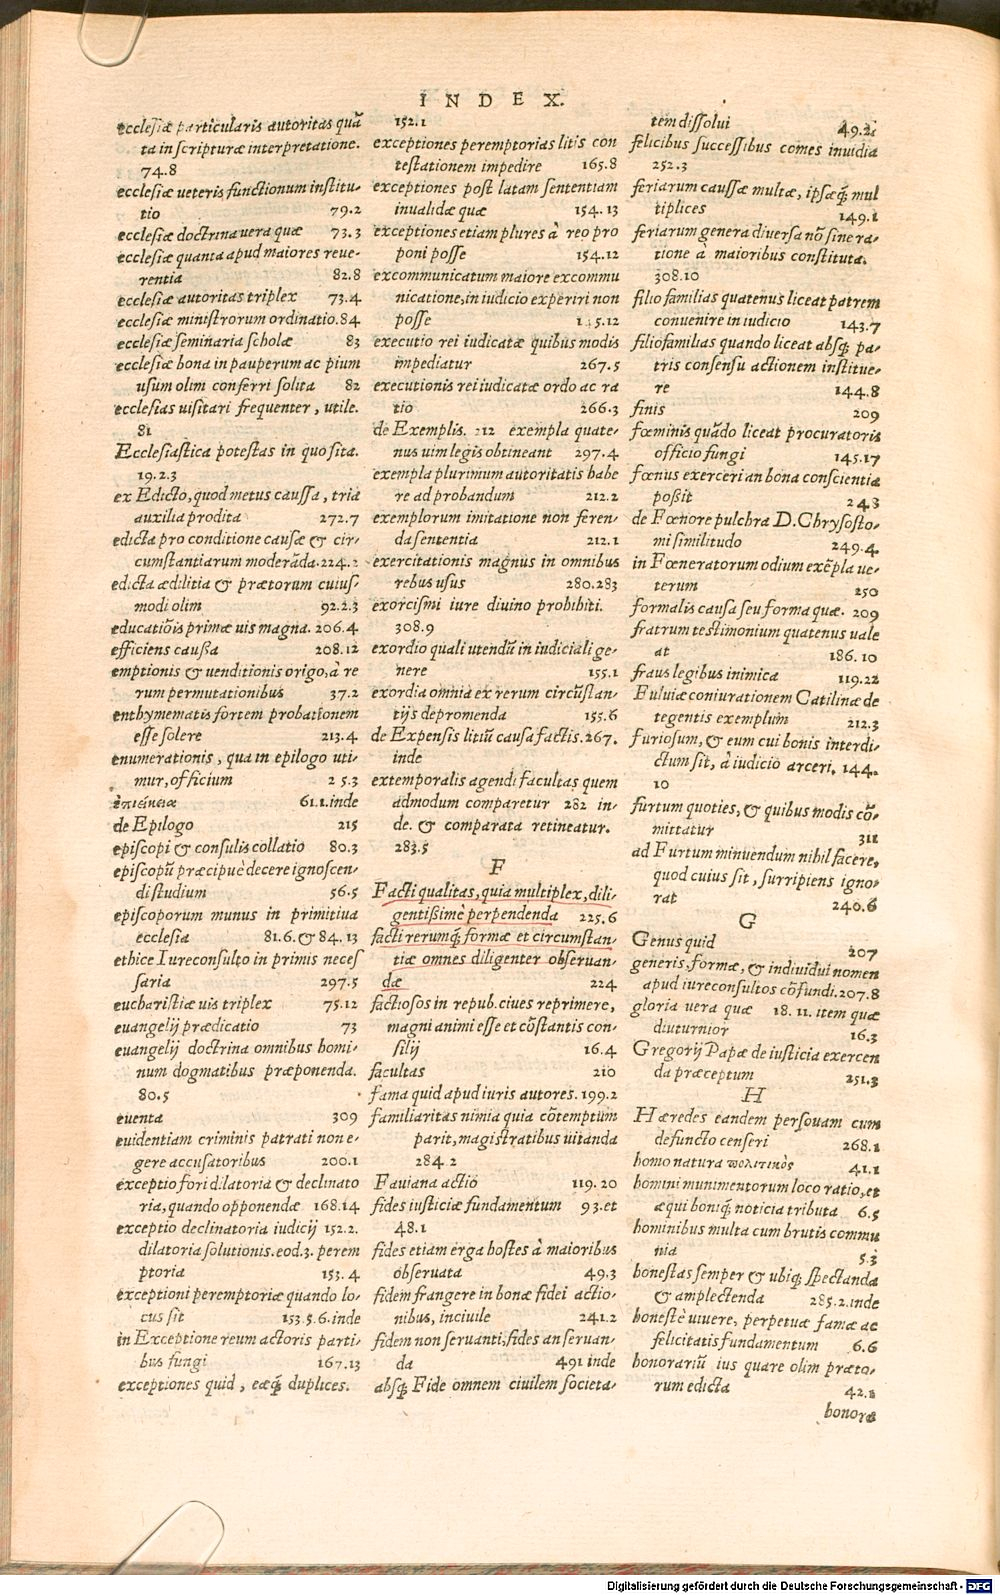 INDEX.
ecclesiæ particularis autoritas quā
ta in scripturæ interpretatione.
74.8
ecclesiæ ueteris functionum institu-
tio 79.2
ecclesiæ doctrina uera quæ 73.3
ecclesiæ quanta apud maiores reue-
rentia 82.8
ecclesiæ autoritas triplex 73.4
ecclesiæ ministrorum ordinatio. 84
ecclesiæ seminaria scholæ 83
ecclesiæ bona in pauperum ac pium
usum olim conferri solita 82
ecclesias uisitari frequenter, utile.
81
Ecclesiastica potestas in quo sita.
19.2.3
ex Edicto, quod metus caussa, tria
auxilia prodita 272.7
edicta pro conditione causæ & cir-
cumstantiarum moderāda. 224.2
edicta ædilitia & prætorum cuius-
modi olim 92.2.3
educatiōis primæ uis magna. 206.4
efficiens caußa 208.12
emptionis & uenditionis origo, à re
rum permutationibus 37.2
enthymematis fortem probationem
esse solere 213.4
enumerationis, qua in epilogo uti-
mur, officium 2 5.3
ἐπιείκεια 61.1.inde
de Epilogo 215
episcopi & consulis collatio 80.3
episcopū præcipuè decere ignoscen-
di studium 56.5
episcoporum munus in primitiua
ecclesia 81.6. & 84.13
ethice Iureconsulto in primis neces
saria 297.5
eucharistiæ uis triplex 75.12
euangelij prædicatio 73
euangelij doctrina omnibus homi-
num dogmatibus præponenda.
80.5
euenta 309
euidentiam criminis patrati non e-
gere accusatoribus 200.1
exceptio fori dilatoria & declinato
ria, quando opponendæ 168.14
exceptio declinatoria iudicij 152.2.
dilatoria solutionis. eod. 3. perem
ptoria 153.4
exceptioni peremptoriæ quando lo-
cus sit 153.5.6.inde
in Exceptione reum actoris parti-
bus fungi 167.13
exceptiones quid, eæq́; duplices.
152.1
exceptiones peremptorias litis con
testationem impedire 165.8
exceptiones post latam sententiam
inualidæ quæ 154.13
exceptiones etiam plures à reo pro
poni posse 154.12
excommunicatum maiore excommu
nicatione, in iudicio experiri non
posse 145.12
executio rei iudicatæ quibus modis
impediatur 267.5
executionis rei iudicatæ ordo ac ra
tio 266.3
de Exemplis. 212 exempla quate-
nus uim legis obtineant 297.4
exempla plurimum autoritatis habe
re ad probandum 212.2
exemplorum imitatione non feren-
da sententia 212.1
exercitationis magnus in omnibus
rebus usus 280.283
exorcismi iure diuino prohibiti.
308.9
exordio quali utendū in iudiciali ge-
nere 155.1
exordia omnia ex rerum circūstan-
tijs depromenda 155.6
de Expensis litiū causa factis. 267.
inde
extemporalis agendi facultas quem
admodum comparetur 282 in-
de. & comparata retineatur.
283.5
F
Facti qualitas, quia multiplex, dili-
gentißimè perpendenda 225.6
facti rerumq́; formæ et circumstan-
tiæ omnes diligenter obseruan-
dæ 224
factiosos in repub. ciues reprimere,
magni animi esse et cōstantis con-
silij 16.4
facultas 210
fama quid apud iuris autores. 199.2
familiaritas nimia quia cōtemptum
parit, magistratibus uitanda
284.2
Fauiana actio 119.20
fides iusticiæ fundamentum 93.et
48.1
fides etiam erga hostes à maioribus
obseruata 49.3
fidem frangere in bonæ fidei actio-
nibus, inciuile 241.2
fidem non seruanti, fides an seruan-
da 491 inde
absq́; Fide omnem ciuilem societa-
tem dissolui 49.2
felicibus successibus comes inuidia
252.3
feriarum caussæ multæ, ipsæq́; mul
tiplices 149.1
feriarum genera diuersa nō sine ra-
tione à maioribus constituta.
308.10
filio familias quatenus liceat patrem
conuenire in iudicio 143.7
filiofamilias quando liceat absq́; pa-
tris consensu actionem institue-
re 144.8
finis 209
fœminis quādo liceat procuratoris
officio fungi 145.17
fœnus exerceri an bona conscientia
poßit 248
de Fœnore pulchra D. Chrysosto-
mi similitudo 249.4.
in Fœneratorum odium exēpla ue-
terum 250
formalis causa seu forma quæ. 209
fratrum testimonium quatenus uale
at 186.10
fraus legibus inimica 119.22
Fuluiæ coniurationem Catilinæ de
tegentis exemplum 212.3
furiosum, & eum cui bonis interdi-
ctum sit, à iudicio arceri. 144.
10
furtum quoties, & quibus modis cō-
mittatur 311
ad Furtum minuendum nihil facere,
quod cuius sit, surripiens igno-
rat 240.6
G
Genus quid 207
generis, formæ, & indiuidui nomen
apud iureconsultos cōfundi. 207.8
gloria uera quæ 18.11. item quæ
diuturnior 16.3
Gregorij Papæ de iusticia exercen
da præceptum 251.3
H
Hæredes eandem personam cum
defuncto censeri 268.1
homo natura πολιτικὸς 41.1
homini munimentorum loco ratio, et
æqui boniq́; noticia tributa 6.5
hominibus multa cum brutis commu
nia 5.3
honestas semper & ubiq́; spectanda
& amplectenda 285.2.inde
honestè uiuere, perpetuæ famæ ac
felicitatis fundamentum 6.6
honorariū ius quare olim præto-
rum edicta 42.1
honoræ
Digitalisierung gefördert durch die Deutsche Forschungsgemeinschaft - DFG